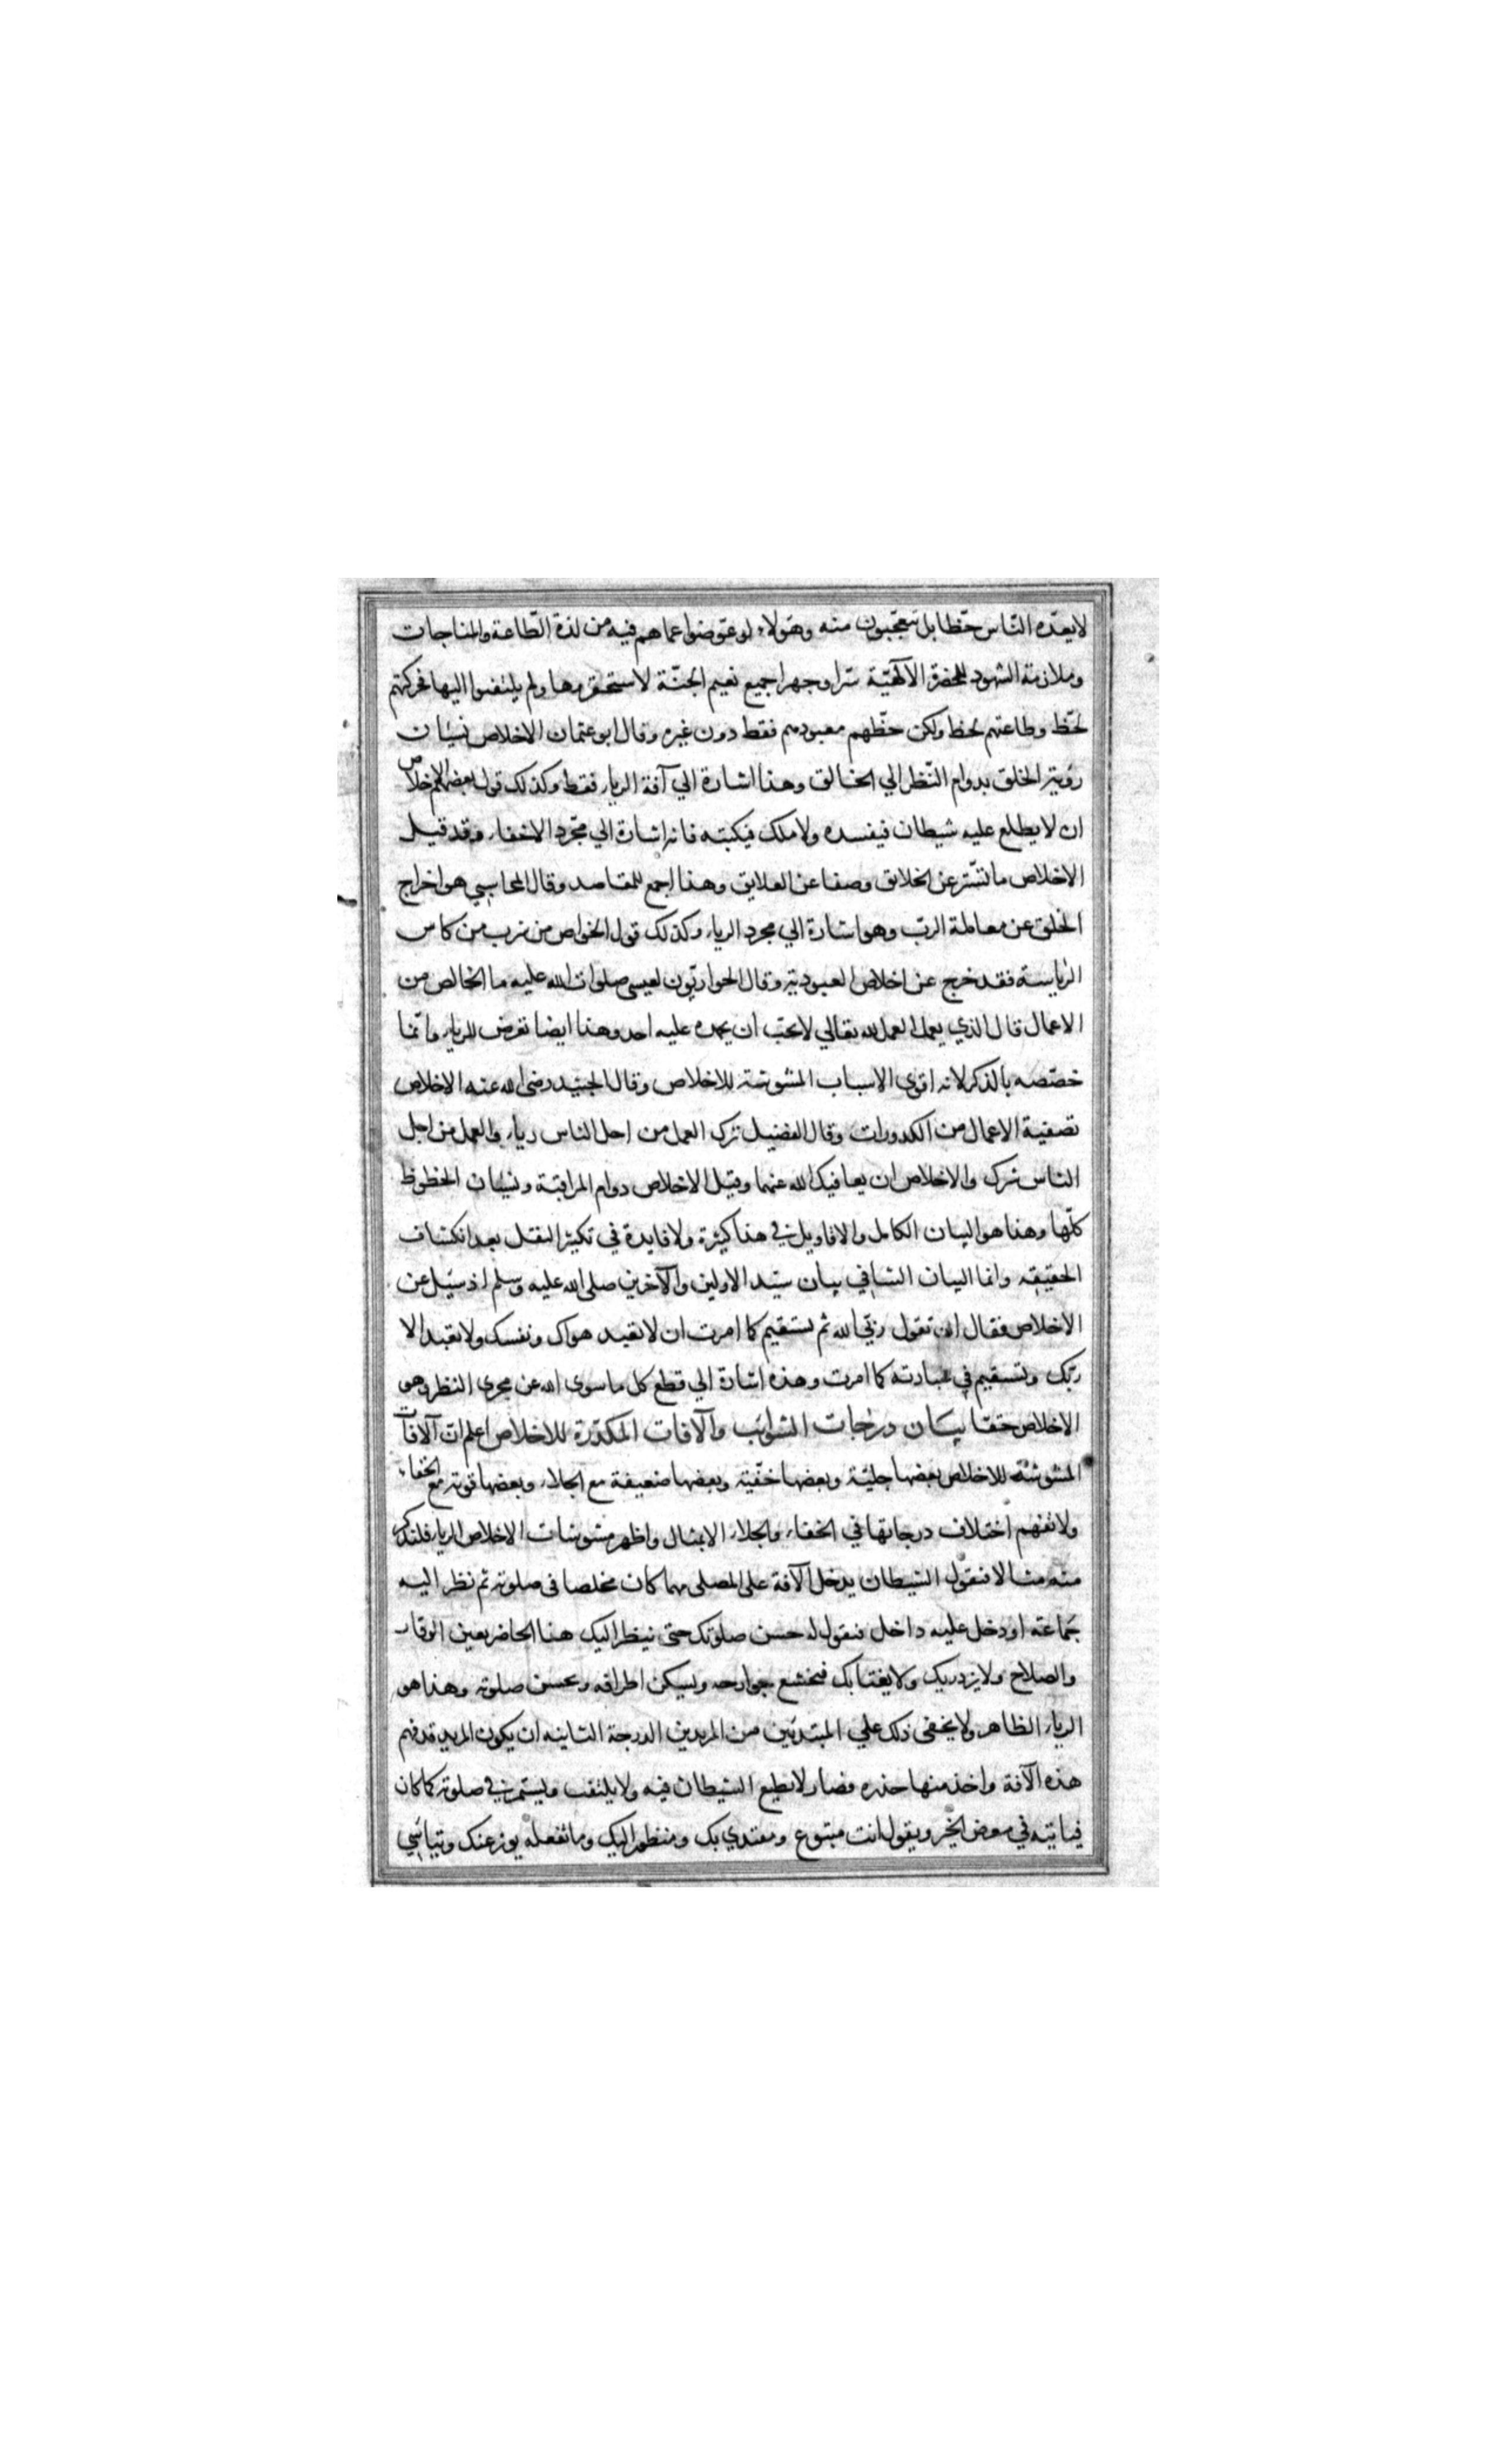 لا يعدّه النّاس حّظا بل تتعجّبون منه وهؤلاء لو عوّضوا عما هم فيه من لذة الطّاعة والمناجات
وملازمة الشهود للحضرة الآلهيّة سّرا وجهرا جميع نعيم الجنّة لاستحقروها ولم يلتفتوا اليها فحركتهم
لحّظ وطاعتهم لحظ ولكن حظّهم معبودهم فقط دون غيره وقال ابو عثمان الاخلاص نسيان
رؤية الخلق بدوام النّظر الي الخالق وهذا اشارة الي آفة الرياء فقط وكذلك قول بعضهم الاخلاص
ان لا يطلع عليه شيطان فيفسده ولا ملك فيكتبه فانه اشارة الي مجّرد الاخفاء وقد قيل
الاخلاص ما تسّتر عن الخلائق وصفا عن العلايق وهذا اجمع للمقاصد وقال المحاسبي هو اخراج
الخلق عن معاملة الربّ وهو اشارة الي مجرد الرياء وكذلك قول الخواص من شرب من كاس
الرياسة فقد خرج عن اخلاص العبودية وقال الحواريّون لعيسى صلوات الله عليه ما الخالص من
الاعمال قال الذي يعمل العمل لله تعالي لا يحّب ان يحمده عليه احد وهذا ايضا تعرض للرياء وانّما
خصّصه بالذكر لانه اقوى الاسباب المشوشة للاخلاص وقال الجنيد رضى الله عنه الاخلاص
تصفية الاعمال من الكدورات وقال الفضيل ترك العمل من اجل الناس رياء والعمل من اجل
الناس شرك والاخلاص ان يعافيك الله عنهما وقيل الاخلاص دوام المراقبة ونسيان الحظوظ
كلّها وهذا هو البيان الكامل والاقاويل في هذا كثيرة ولا فايدة في تكثير النقل بعد انكشاف
الحقيقه وانما البيان الشافي بيان سيّد الاولين والآخرين صلى الله عليه وسلم اذ سئيل عن
الاخلاص فقال ان تقول ربّي الله ثم تستقيم كما امرت ان لا تعبد هواك ونفسك ولا تعبد الا
ربّك وتستقيم في عبادته كما امرت وهذه اشارة الي قطع كل ما سوى الله عن مجرى النظر وهو
الاخلاص حقا بيان درجات الشوائب والآفات المكدّرة للاخلاص اعلم ان الآفات
المشوشة للاخلاص بعضها جليّة وبعضها خفّية وبعضها ضعيفة مع الجلاء وبعضها قوية مع الخفاء
ولا تفهم اختلاف درجاتها في الخفاء والجلاء الا بمثال واظهر مشوشات الاخلاص الرياء فلنذكر
منه مثالا فنقول الشيطان يدخل الآفة على المصلى مهما كان مخلصا فى صلوته ثم نظر اليه
جماعة او دخل عليه داخل فيقول له حسن صلوتك حتى ينظر اليك هذا الحاضر بعين الوقار
والصلاح ولا يزدريك ولا يغتابك فتخشع جوارحه وتسكن اطرافه وتحسن صلوته وهذا هو
الرياء الظاهر ولا يخفى ذلك علي المبتدئين من المريدين الدرجة الثانيه ان يكون المريد قد فهم
هذه الآفة واخذ منها حذره فصار لا يطيع الشيطان فيه ولا يلتفت ويستمر في صلوته كما كان
فياتيه في معرض الخير ويقول انت متبوع ومقتدي بك ومنظور اليك وما تفعله يؤثر عنك ويتأسّي